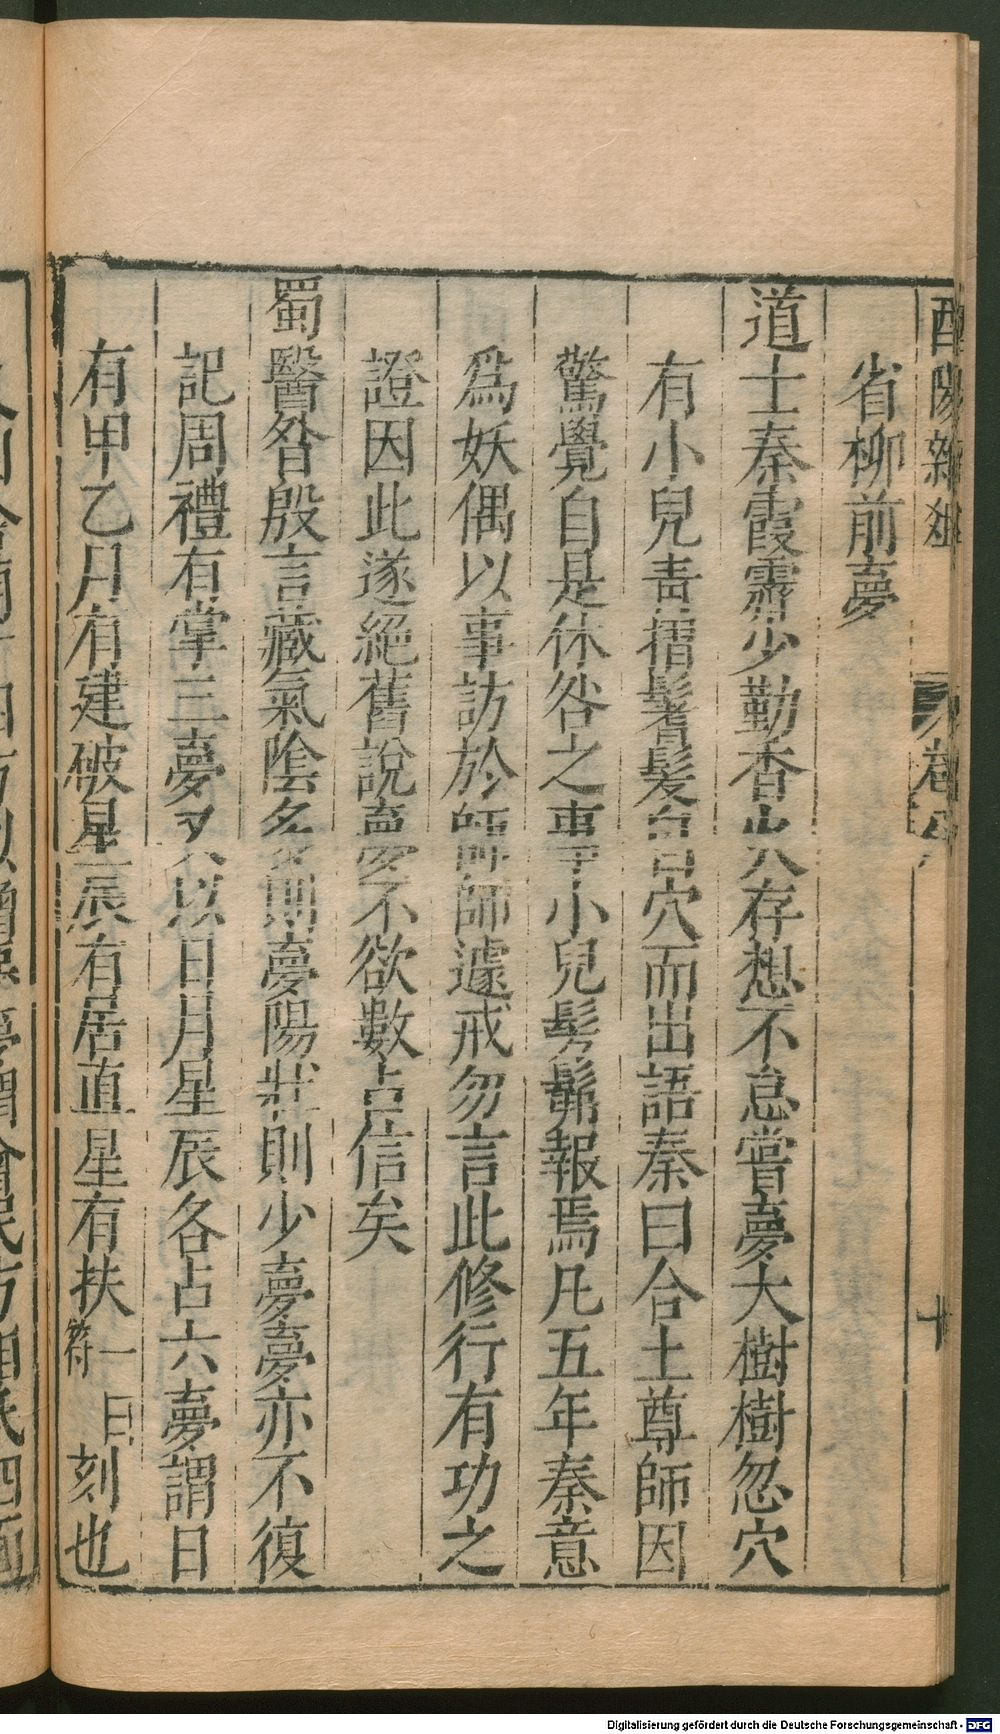 酉陽雜俎 卷八 十
省柳前夢
道士秦霞霽少勤香火存想不怠嘗夢大樹樹忽穴
有小兒青褶鬐髮自穴而出語秦曰合土尊師因
驚覺自是休咎之事小兒髣髴報焉凡五年秦意
爲妖偶以事訪於師師遽戒勿言此修行有功之
證因此遂絕舊說夢不欲數占信矣
蜀醫昝殷言藏氣陰多則夢陽壯則少夢夢亦不復
記周禮有掌三夢又以日月星辰各占六夢謂日
有甲乙月有建破星辰有居直星有扶一曰符刻也
Digitalisierung gefördert durch die Deutsche Forschungsgemeinschaft - DFG